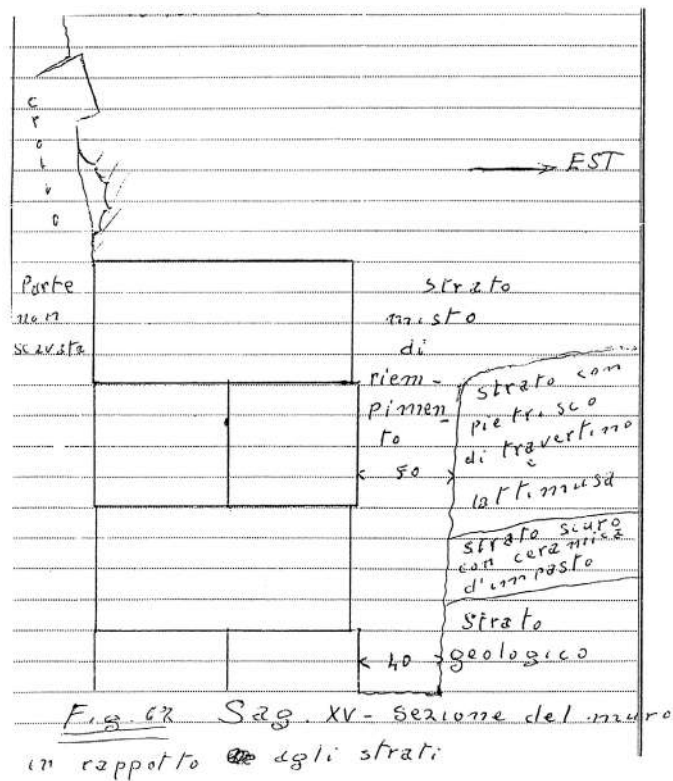 crollo
EST
Parte
non
scavata
strato
misto
di
riem-
pimen
to
50
strato con
pietrisco
di travertino
e
lattimusa
strato scuro
con ceramica
d'impasto
Strato
geologico
40
Sag. XV - Sezione del muro
in rappotto agli strati